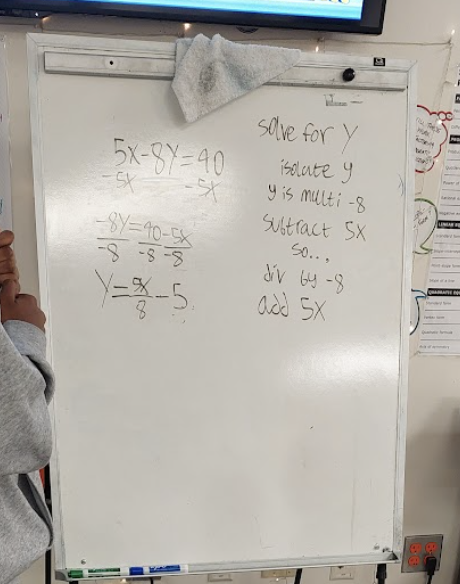 5x-8y=40
-5x -5x
-8y=40-5x
-8 -8 -8
y=5x/8-5
solve for y
isolate y
y is multi -8
subtract 5x
so...
div by -8
add 5x